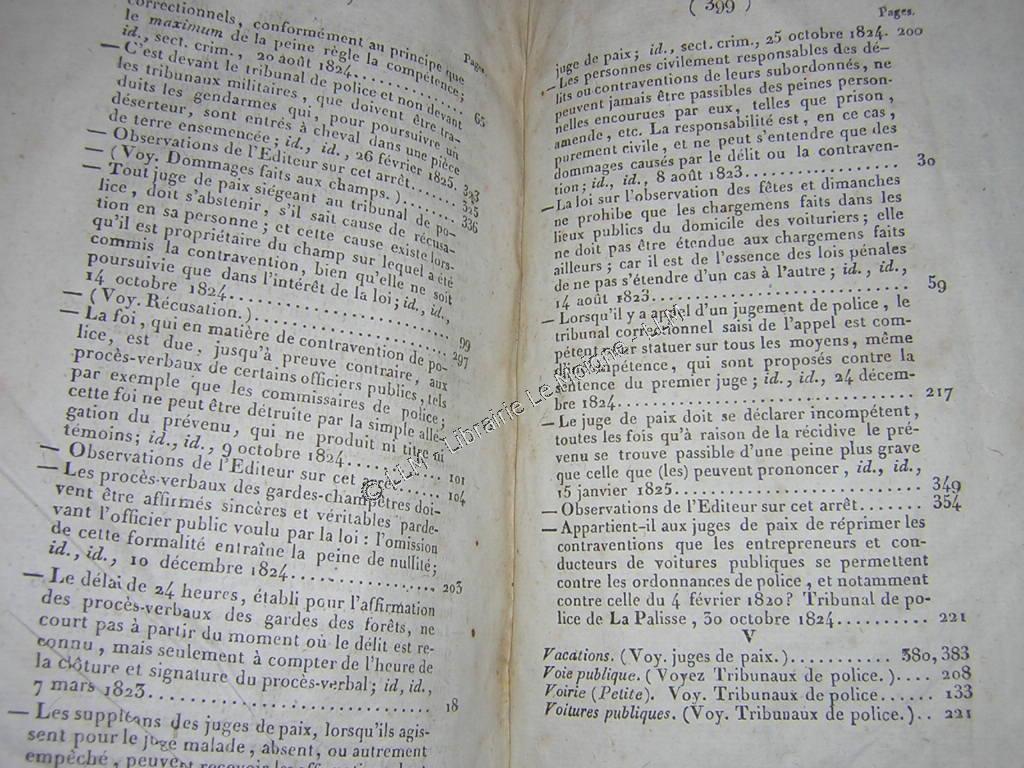 correctionnels, conformément au principe que
Pages.
le maximum de la peine règle la compétence;
id., sect. crim., 20 août 1824............ 65
— C'est devant le tribunal de police et non devant
les tribunaux militaires, que doivent être tra-
duits les gendarmes qui, pour poursuivre un
déserteur, sont entrés à cheval dans une pièce
de terre ensemencée; id., id., 26 février 1825. 323
— Observations de l'Editeur sur cet arrêt...... 325
— (Voy. Dommages faits aux champs.)....... 336
— Tout juge de paix siégeant au tribunal de po-
lice, doit s'abstenir, s'il sait cause de récusa-
tion en sa personne; et cette cause existe lors-
qu'il est propriétaire du champ sur lequel a été
commis la contravention, bien qu'elle ne soit
poursuivie que dans l'intérêt de la loi; id., id.,
14 octobre 1824......................... 99
— (Voy. Récusation.)...................... 297
— La foi, qui en matière de contravention de po-
lice, est due, jusqu'à preuve contraire, aux
procès-verbaux de certains officiers publics, tels
par exemple que les commissaires de police;
cette foi ne peut être détruite par la simple allé-
gation du prévenu, qui ne produit ni titre ni
témoins; id., id., 9 octobre 1824.......... 101
— Observations de l'Editeur sur cet arrêt...... 104
— Les procès-verbaux des gardes-champêtres doi-
vent être affirmés sincères et véritables parde-
vant l'officier public voulu par la loi: l'omission
de cette formalité entraîne la peine de nullité;
id., id., 10 décembre 1824................ 203
— Le délai de 24 heures, établi pour l'affirmation
des procès-verbaux des gardes des forêts, ne
court pas à partir du moment où le délit est re-
connu, mais seulement à compter de l'heure de
la clôture et signature du procès-verbal; id, id.,
7 mars 1823............................. 18
— Les suppléans des juges de paix, lorsqu'ils agis-
sent pour le juge malade, absent, ou autrement
empêché, peuvent recevoir les
( 399 )
Pages.
juge de paix; id., sect. crim., 25 octobre 1824. 200
— Les personnes civilement responsables des dé-
lits ou contraventions de leurs subordonnés, ne
peuvent jamais être passibles des peines person-
nelles encourues par eux, telles que prison,
amende, etc. La responsabilité est, en ce cas,
purement civile, et ne peut s'entendre que des
dommages causés par le délit ou la contraven-
tion; id., id., 8 août 1823................ 30
— La loi sur l'observation des fêtes et dimanches
ne prohibe que les chargemens faits dans les
lieux publics du domicile des voituriers; elle
ne doit pas être étendue aux chargemens faits
ailleurs; car il est de l'essence des lois pénales
de ne pas s'étendre d'un cas à l'autre; id., id.,
14 août 1823............................ 59
— Lorsqu'il y a appel d'un jugement de police, le
tribunal correctionnel saisi de l'appel est com-
pétent pour statuer sur tous les moyens, même
d'incompétence, qui sont proposés contre la
sentence du premier juge; id., id., 24 décem-
bre 1824................................ 217
— Le juge de paix doit se déclarer incompétent,
toutes les fois qu'à raison de la récidive le pré-
venu se trouve passible d'une peine plus grave
que celle que (les) peuvent prononcer, id., id.,
15 janvier 1825......................... 349
— Observations de l'Editeur sur cet arrêt....... 354
— Appartient-il aux juges de paix de réprimer les
contraventions que les entrepreneurs et con-
ducteurs de voitures publiques se permettent
contre les ordonnances de police, et notamment
contre celle du 4 février 1820? Tribunal de po-
lice de La Palisse, 30 octobre 1824.......... 221
V
Vacations. (Voy. juges de paix.).......... 380, 383
Voie publique. (Voyez Tribunaux de police.).... 208
Voirie (Petite). Voy. Tribunaux de police...... 133
Voitures publiques. (Voy. Tribunaux de police.).. 221
© LLM - Librairie Le Moigne - LLM